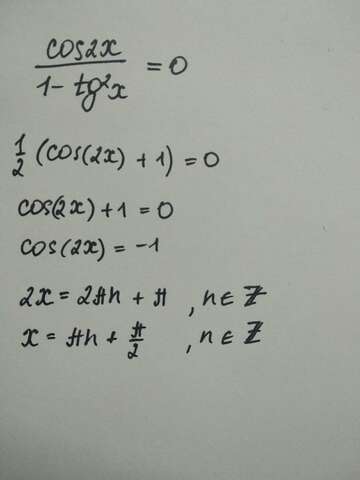 cos2x
1 - tg²x = 0
1/2 (cos(2x) + 1) = 0
cos(2x) + 1 = 0
cos(2x) = -1
2x = 2πn + π , n ∈ Z
x = πn + π/2 , n ∈ Z